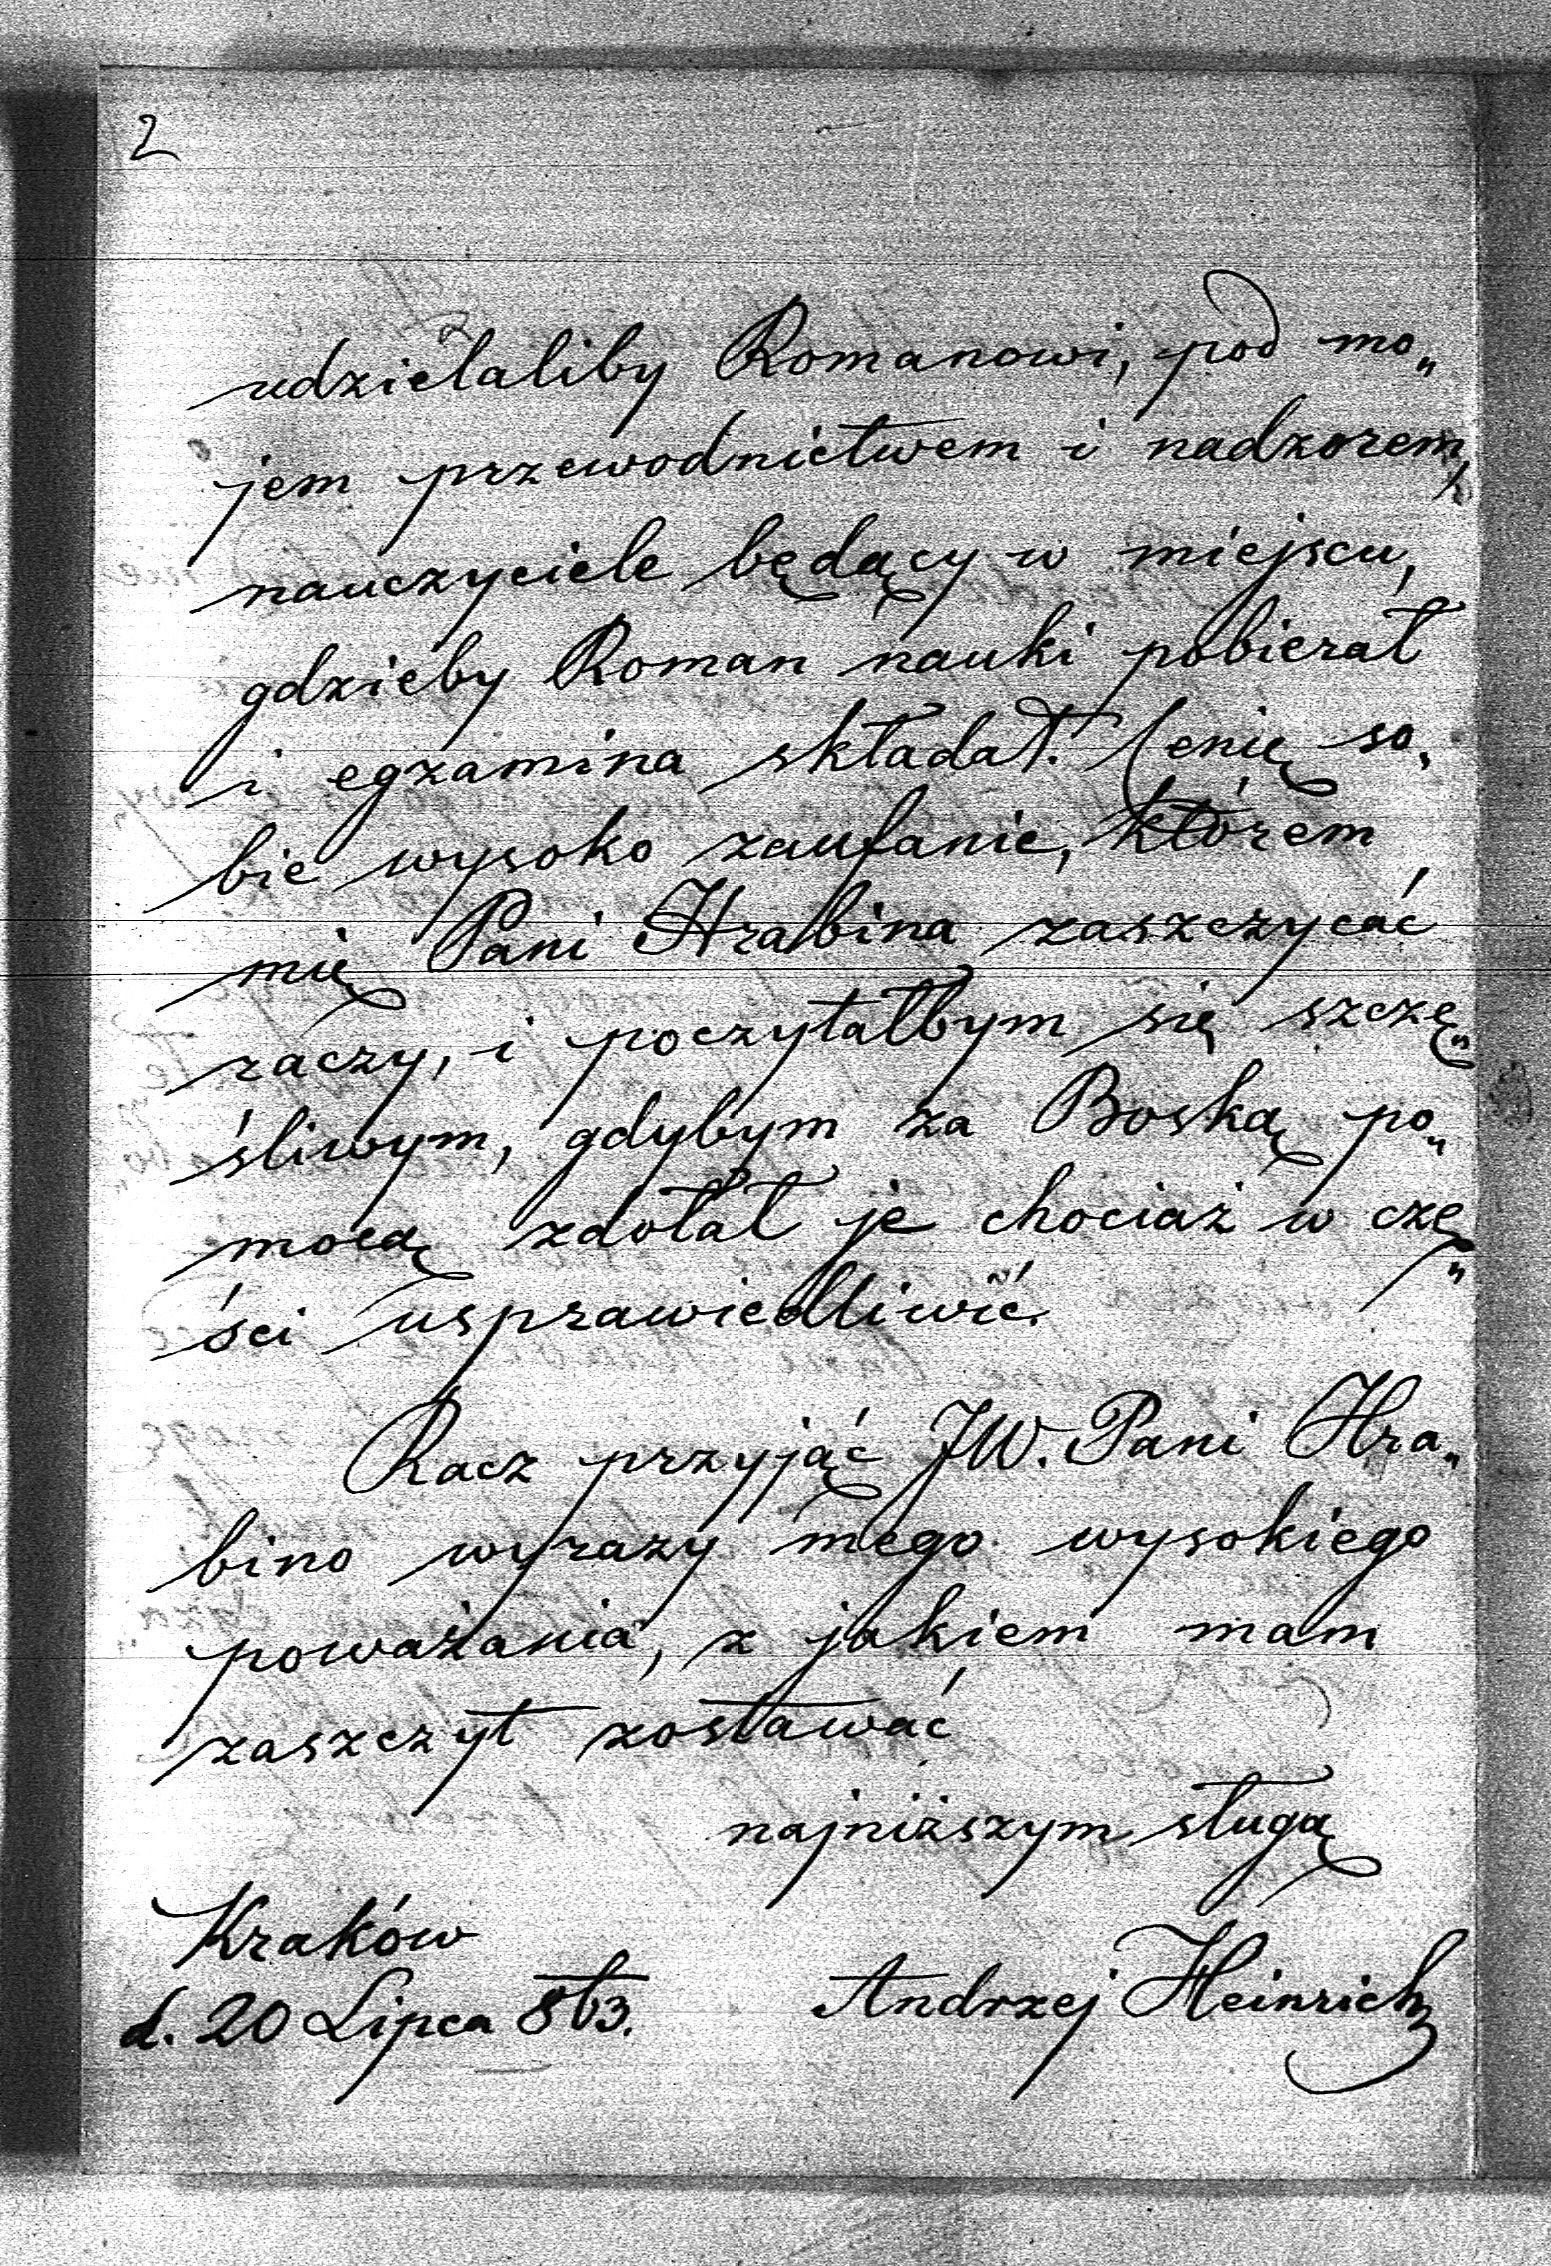 2
udzielaliby Romanowi, pod mo„
jem przewodnictwem i nadzorem,
nauczyciele będący w miejscu,
gdzieby Roman nauki pobierał
i egzamina składał. Cenię so„
bie wysoko zaufanie, którem
mię Pani Hrabina zaszczycać
raczy, i poczytałbym się szczę„
śliwym, gdybym za Boską po„
mocą zdołał je chociaż w czę„
ści usprawiedliwić.
Racz przyjąć JW. Pani Hra„
bino wyrazy mego wysokiego
poważania, z jakiem mam
zaszczyt zostawać
najniższym sługą
Kraków
d. 20 Lipca 863.
Andrzej Heinrich